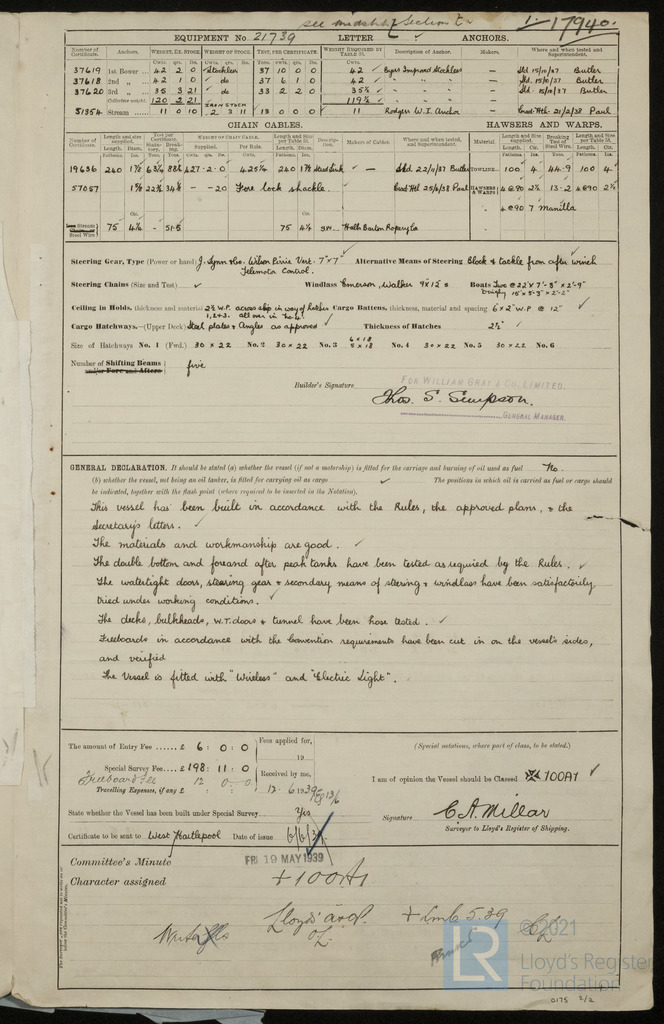 see midship Section Cr
1 - 17940.
EQUIPMENT No. 21739 LETTER ✓ ANCHORS.
Number of Certificate. Anchors. WEIGHT, EX. STOCK WEIGHT OF STOCK. TEST, PER CERTIFICATE. WEIGHT REQUIRED BY TABLE 53. Description of Anchor. Makers. Where and when tested and Superintendent.
37619 1st Bower 42 2 0 Stockless 37 10 0 0 42 Byers Improved Stockless — Sld 15/10/37 Butler
37618 2nd „ 42 1 0 ✓ do 37 6 1 0 42 „ „ — Sld. 15/10/37 Butler
37620 3rd „ 35 3 21 ✓ do 33 2 2 0 35¾ „ „ — Sld. 15/10/37 Butler
Collective weight 120 2 21 119¾
IRON STOCK
51354 Stream 11 0 10 2 3 11 13 0 0 0 11 Rodgers W.I. Anchor — Crad-Hth. 21/2/38 Paul
CHAIN CABLES. HAWSERS AND WARPS.
Number of Certificate. Length and size supplied. Test per Certificate. WEIGHT OF CHAIN CABLE. Length and Size per Table 53. Description. Makers of Cables. Where and when tested, and Superintendent. Material Length and Size supplied. Breaking Test of Steel Wire. Length and Size per Table 53.
Fathoms. Diam. Statutory. Breaking. Supplied. Per Rule. Length. Diam. Length. Cir.
427·2·0 425¼ 240 Stud Link — Sld 22/11/37 Butler TOWLINE 100 4 44·9 100 4
57057 —20 Fore lock shackle. Crad Hth 25/6/38 Paul HAWSERS & WARPS 4@90 2½ 13·2 4@90 2½
„ 4@90 7 Manilla
Steel Wire 75 51·5 75 Hall's Barton Ropery Co
Steering Gear, Type (Power or hand) J. Lynn & Co. Wilson Pirrie Vert. 7"x7" Alternative Means of Steering Block & tackle from after winch
Telemotor Control.
Steering Chains (Size and Test) ✓ Windlass Emerson, Walker 9"x12"s Boats Two @ 22'x7'-3"x2'-9"
Dinghy 15'x5'-3"x2'-2"
Ceiling in Holds, thickness and material 2½" W.P. across ship in way of holds Cargo Battens, thickness, material and spacing 6x2" W.P @ 12" ✓
1, 2 & 3. all over in No 4.
Cargo Hatchways.—(Upper Deck) Steel plates & Angles as approved ✓ Thickness of Hatches 2½" ✓
Size of Hatchways No. 1 (Fwd.) 30 x 22 No. 2 30 x 22 No. 3 No. 4 30 x 22 No. 5 30 x 22 No. 6
Number of Shifting Beams
and/or Fore and Afters five
Builder's Signature FOR WILLIAM GRAY & CO. LIMITED.
Thos. S. Simpson.
GENERAL MANAGER.
GENERAL DECLARATION. It should be stated (a) whether the vessel (if not a motorship) is fitted for the carriage and burning of oil used as fuel No.
(b) whether the vessel, not being an oil tanker, is fitted for carrying oil as cargo ✓ The positions in which oil is carried as fuel or cargo should
be indicated, together with the flash point (where required to be inserted in the Notation).
This vessel has been built in accordance with the Rules, the approved plans, & the
Secretary's letters. ✓
The materials and workmanship are good. ✓
The double bottom and fore and after peak tanks have been tested as required by the Rules. ✓
The watertight doors, steering gear & secondary means of steering & windlass have been satisfactorily
tried under working conditions. ✓
The decks, bulkheads, W.T. doors & tunnel have been hose tested. ✓
Freeboards in accordance with the Convention requirements have been cut in on the vessel's sides,
and verified
The Vessel is fitted with "Wireless" and "Electric Light".
The amount of Entry Fee ...... £ 6 : 0 : 0 Fees applied for, (Special notations, where part of class, to be stated.)
19
Special Survey Fee £198 : 11 : 0 Received by me,
Freeboard Fee 12 0 : 0 I am of opinion the Vessel should be Classed ✠ 100A1 ✓
Travelling Expenses, if any £ : : 12. 6. 1939
State whether the Vessel has been built under Special Survey Yes Signature C. A. Millar
Surveyor to Lloyd's Register of Shipping.
Certificate to be sent to West Hartlepool Date of issue 6/6/39
Committee's Minute FRI 19 MAY 1939
Character assigned +100A1
Lloyd's A&CP. + LMC 5.39 CL
OL.
The Surveyors are requested not to write on or below the space for Committee's Minute.
LR
© 2021
Lloyd's Register
Foundation
0175 2/2